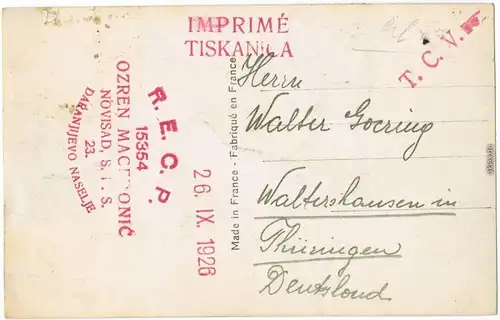 IMPRIMÉ
TISKANICA
T. C. V.
R. E. C. P.
15354
OZREN
NOVISAD, S. H. S.
23.
DARANJIJEVO NASELJE
26. IX. 1926
Made in France - Fabriqué en France
Herrn
Walter Goering
Waltershausen in
Thüringen
Deutslond